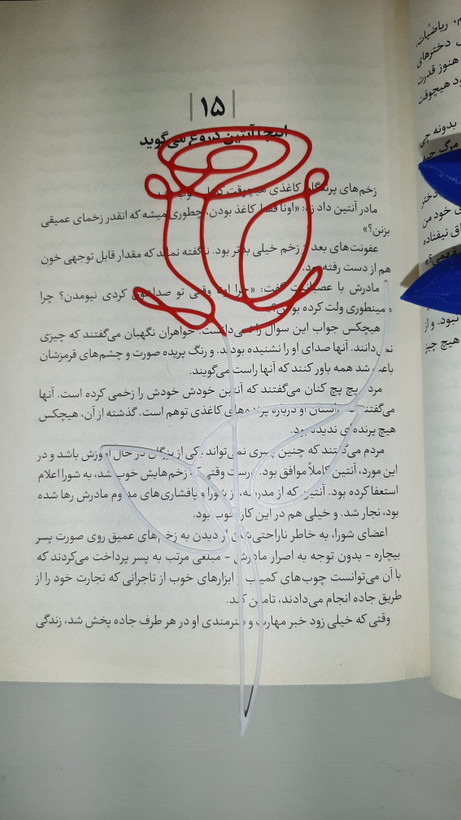 ۱۵
اینجا آنتین دروغ می‌گوید
زخم‌های پرندگان کاغذی هیچوقت
مادر آنتین داد زد: «اونا فقط کاغذ بودن، چطوری میشه که انقدر زخمای عمیقی
بزنن؟»
عفونت‌های بعد از زخم خیلی بدتر بود. ناگفته نماند که مقدار قابل توجهی خون
هم از دست رفته بود.
مادرش با عصبانیت گفت: «چرا اون وقتی تو صداشون کردی نیومدن؟ چرا
همینطوری ولت کرده بودن؟»
هیچکس جواب این سوال را نمی‌دانست. خواهران نگهبان می‌گفتند که چیزی
نمی‌دانند. آنها صدای او را نشنیده بودند. و رنگ پریده صورت و چشم‌های قرمزشان
باعث شد همه باور کنند که آنها راست می‌گویند.
مردم پچ پچ کنان می‌گفتند که آنتین خودش خودش را زخمی کرده است. آنها
می‌گفتند داستان او درباره پرنده‌های کاغذی توهم است. گذشته از آن، هیچکس
هیچ پرنده‌ای ندیده بود.
مردم می‌گفتند که چنین پسری نمی‌تواند یکی از بزرگان در حال آموزش باشد و در
این مورد، آنتین کاملاً موافق بود. درست وقتی که زخم‌هایش خوب شد، به شورا اعلام
استعفا کرده بود. آنتین که از مدرسه، از شورا و پافشاری‌های مداوم مادرش رها شده
بود، نجار شد. و خیلی هم در این کار خوب بود.
اعضای شورا، به خاطر ناراحتی‌شان از دیدن به زخم‌های عمیق روی صورت پسر
بیچاره – بدون توجه به اصرار مادرش – مبلغی مرتب به پسر پرداخت می‌کردند که
با آن می‌توانست چوب‌های کمیاب و ابزارهای خوب از تاجرانی که تجارت خود را از
طریق جاده انجام می‌دادند، تامین کند.
وقتی که خیلی زود خبر مهارت و هنرمندی او در هر طرف جاده پخش شد، زندگی